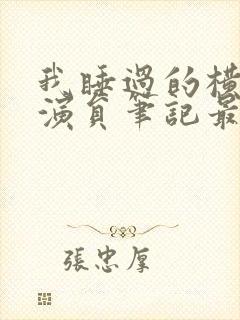 我睡過的橫
演員筆記最
張忠厚